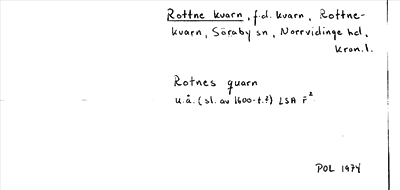 Rottne kvarn, f.d. kvarn, Rottne-
kvarn, Söraby sn, Norrvidinge hd,
kron.l.
Rotnes quarn
u.å. (sl. av 1600-t.?) LSA F²
POL 1974